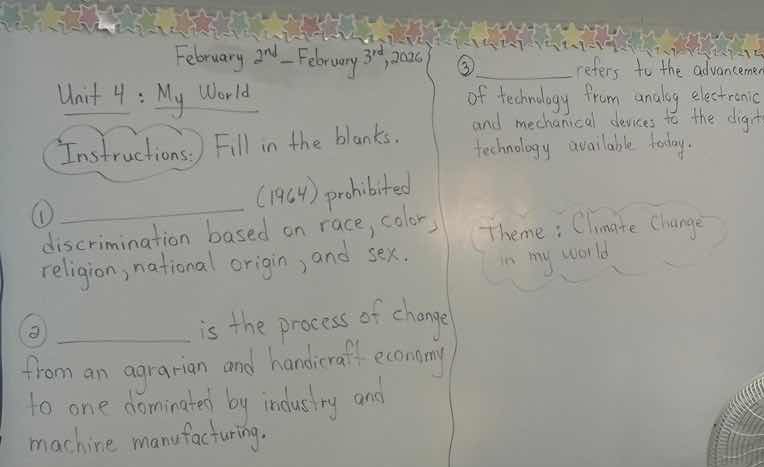 February 2nd - February 3rd, 2026
Unit 4 : My World
Instructions: Fill in the blanks.
① __________ (1964) prohibited
discrimination based on race, color,
religion, national origin, and sex.
② __________ is the process of change
from an agrarian and handicraft economy
to one dominated by industry and
machine manufacturing.
③ __________ refers to the advancemen
of technology from analog electronic
and mechanical devices to the digit
technology available today.
Theme : Climate Change
in my world